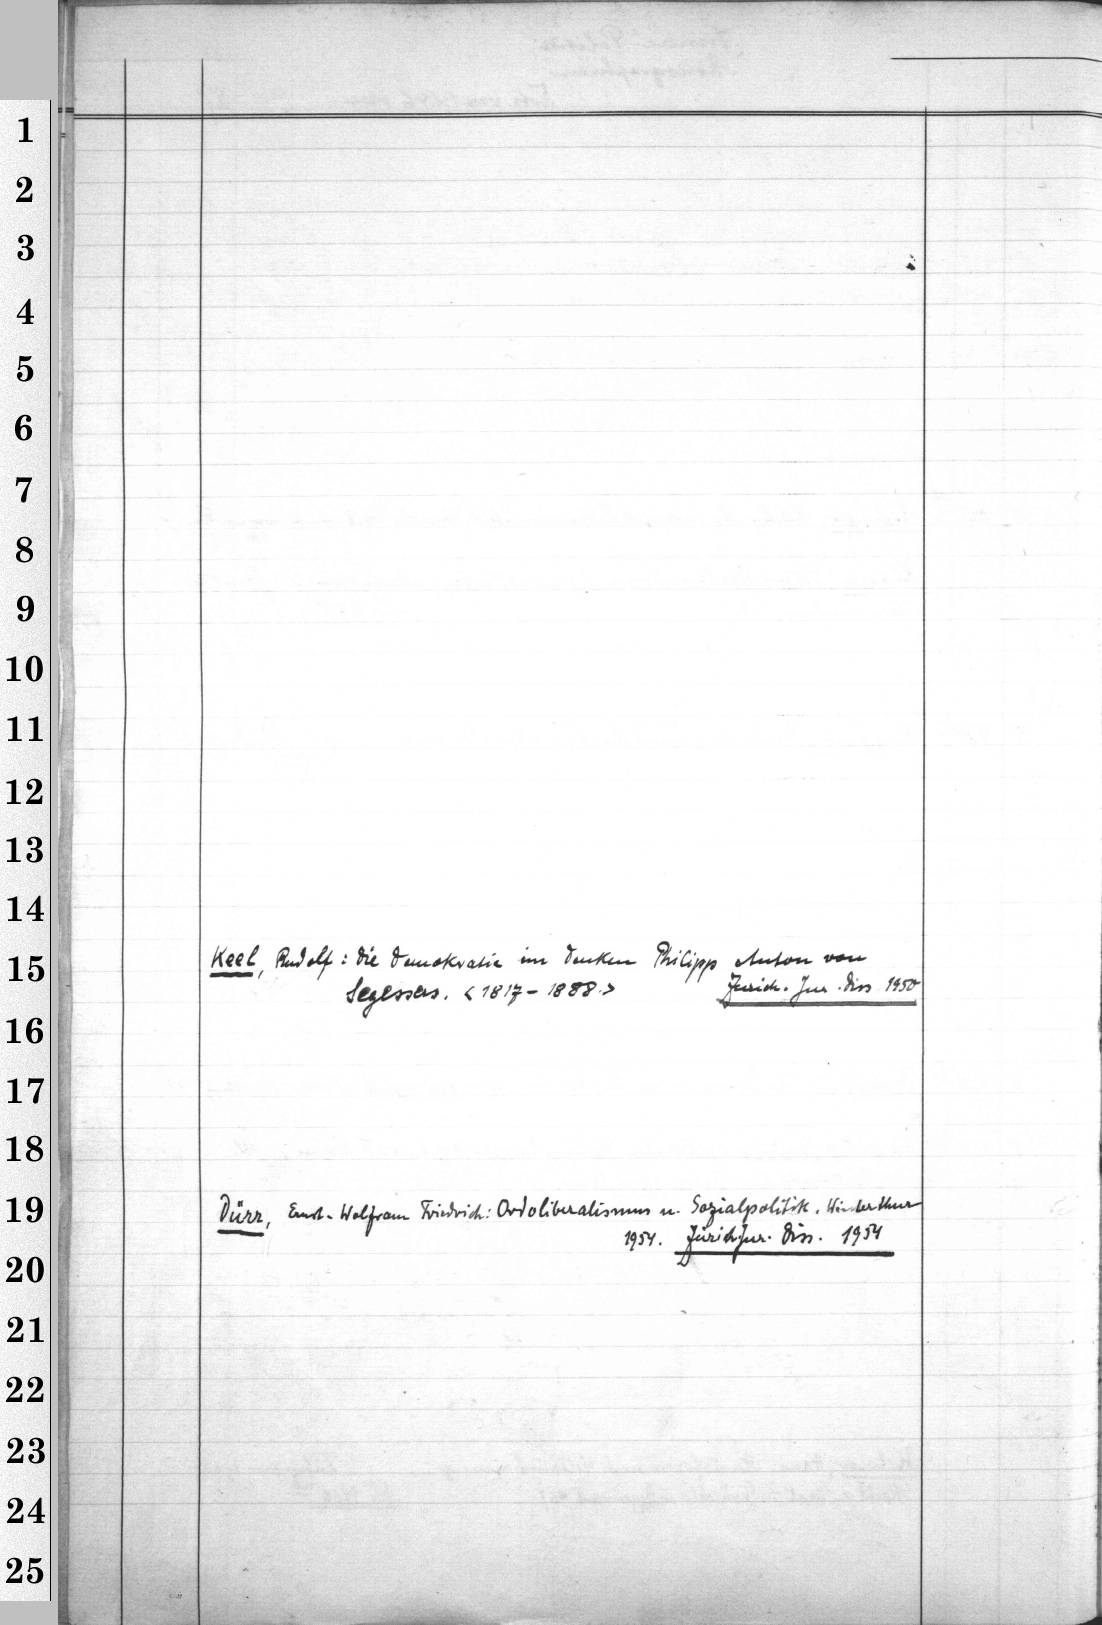 1
2
3
4
5
6
7
8
9
10
11
12
13
14
15
16
17
18
19
20
21
22
23
24
25
Keel, Rudolf: Die Demokratie im Denken Philipp Anton von
Segessers. <1817-1888.> Zürich. Jur. Diss 1950
Dürr, Ernst-Wolfram Friedrich: Ordoliberalismus u. Sozialpolitik. Winterthur
1954. Zürich Jur. Diss. 1954